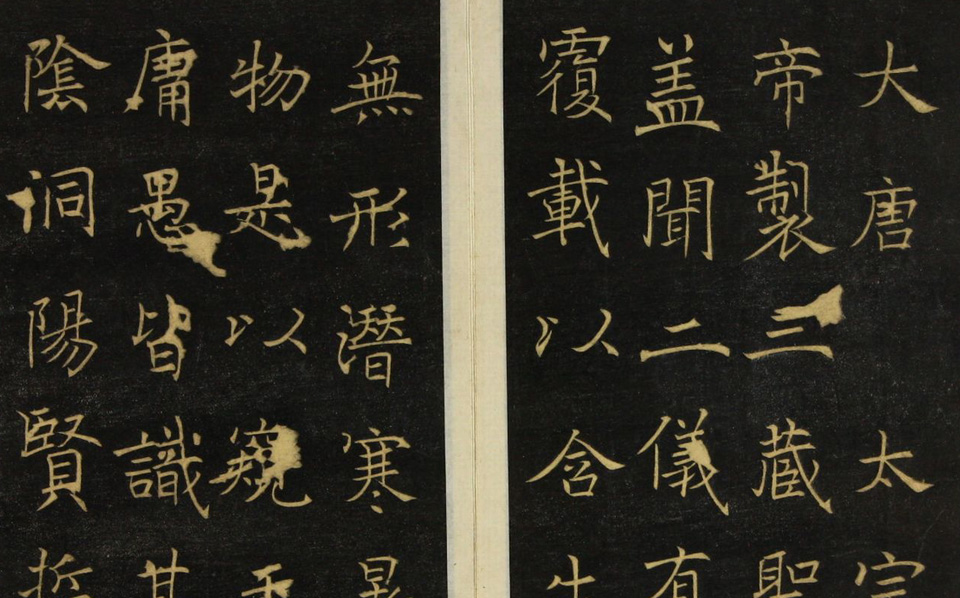 大唐太宗
帝製三蔵聖
盖聞二儀有
覆載以含生
無形潛寒暑
物是以窺天
庸愚皆識其
陰洞陽賢哲